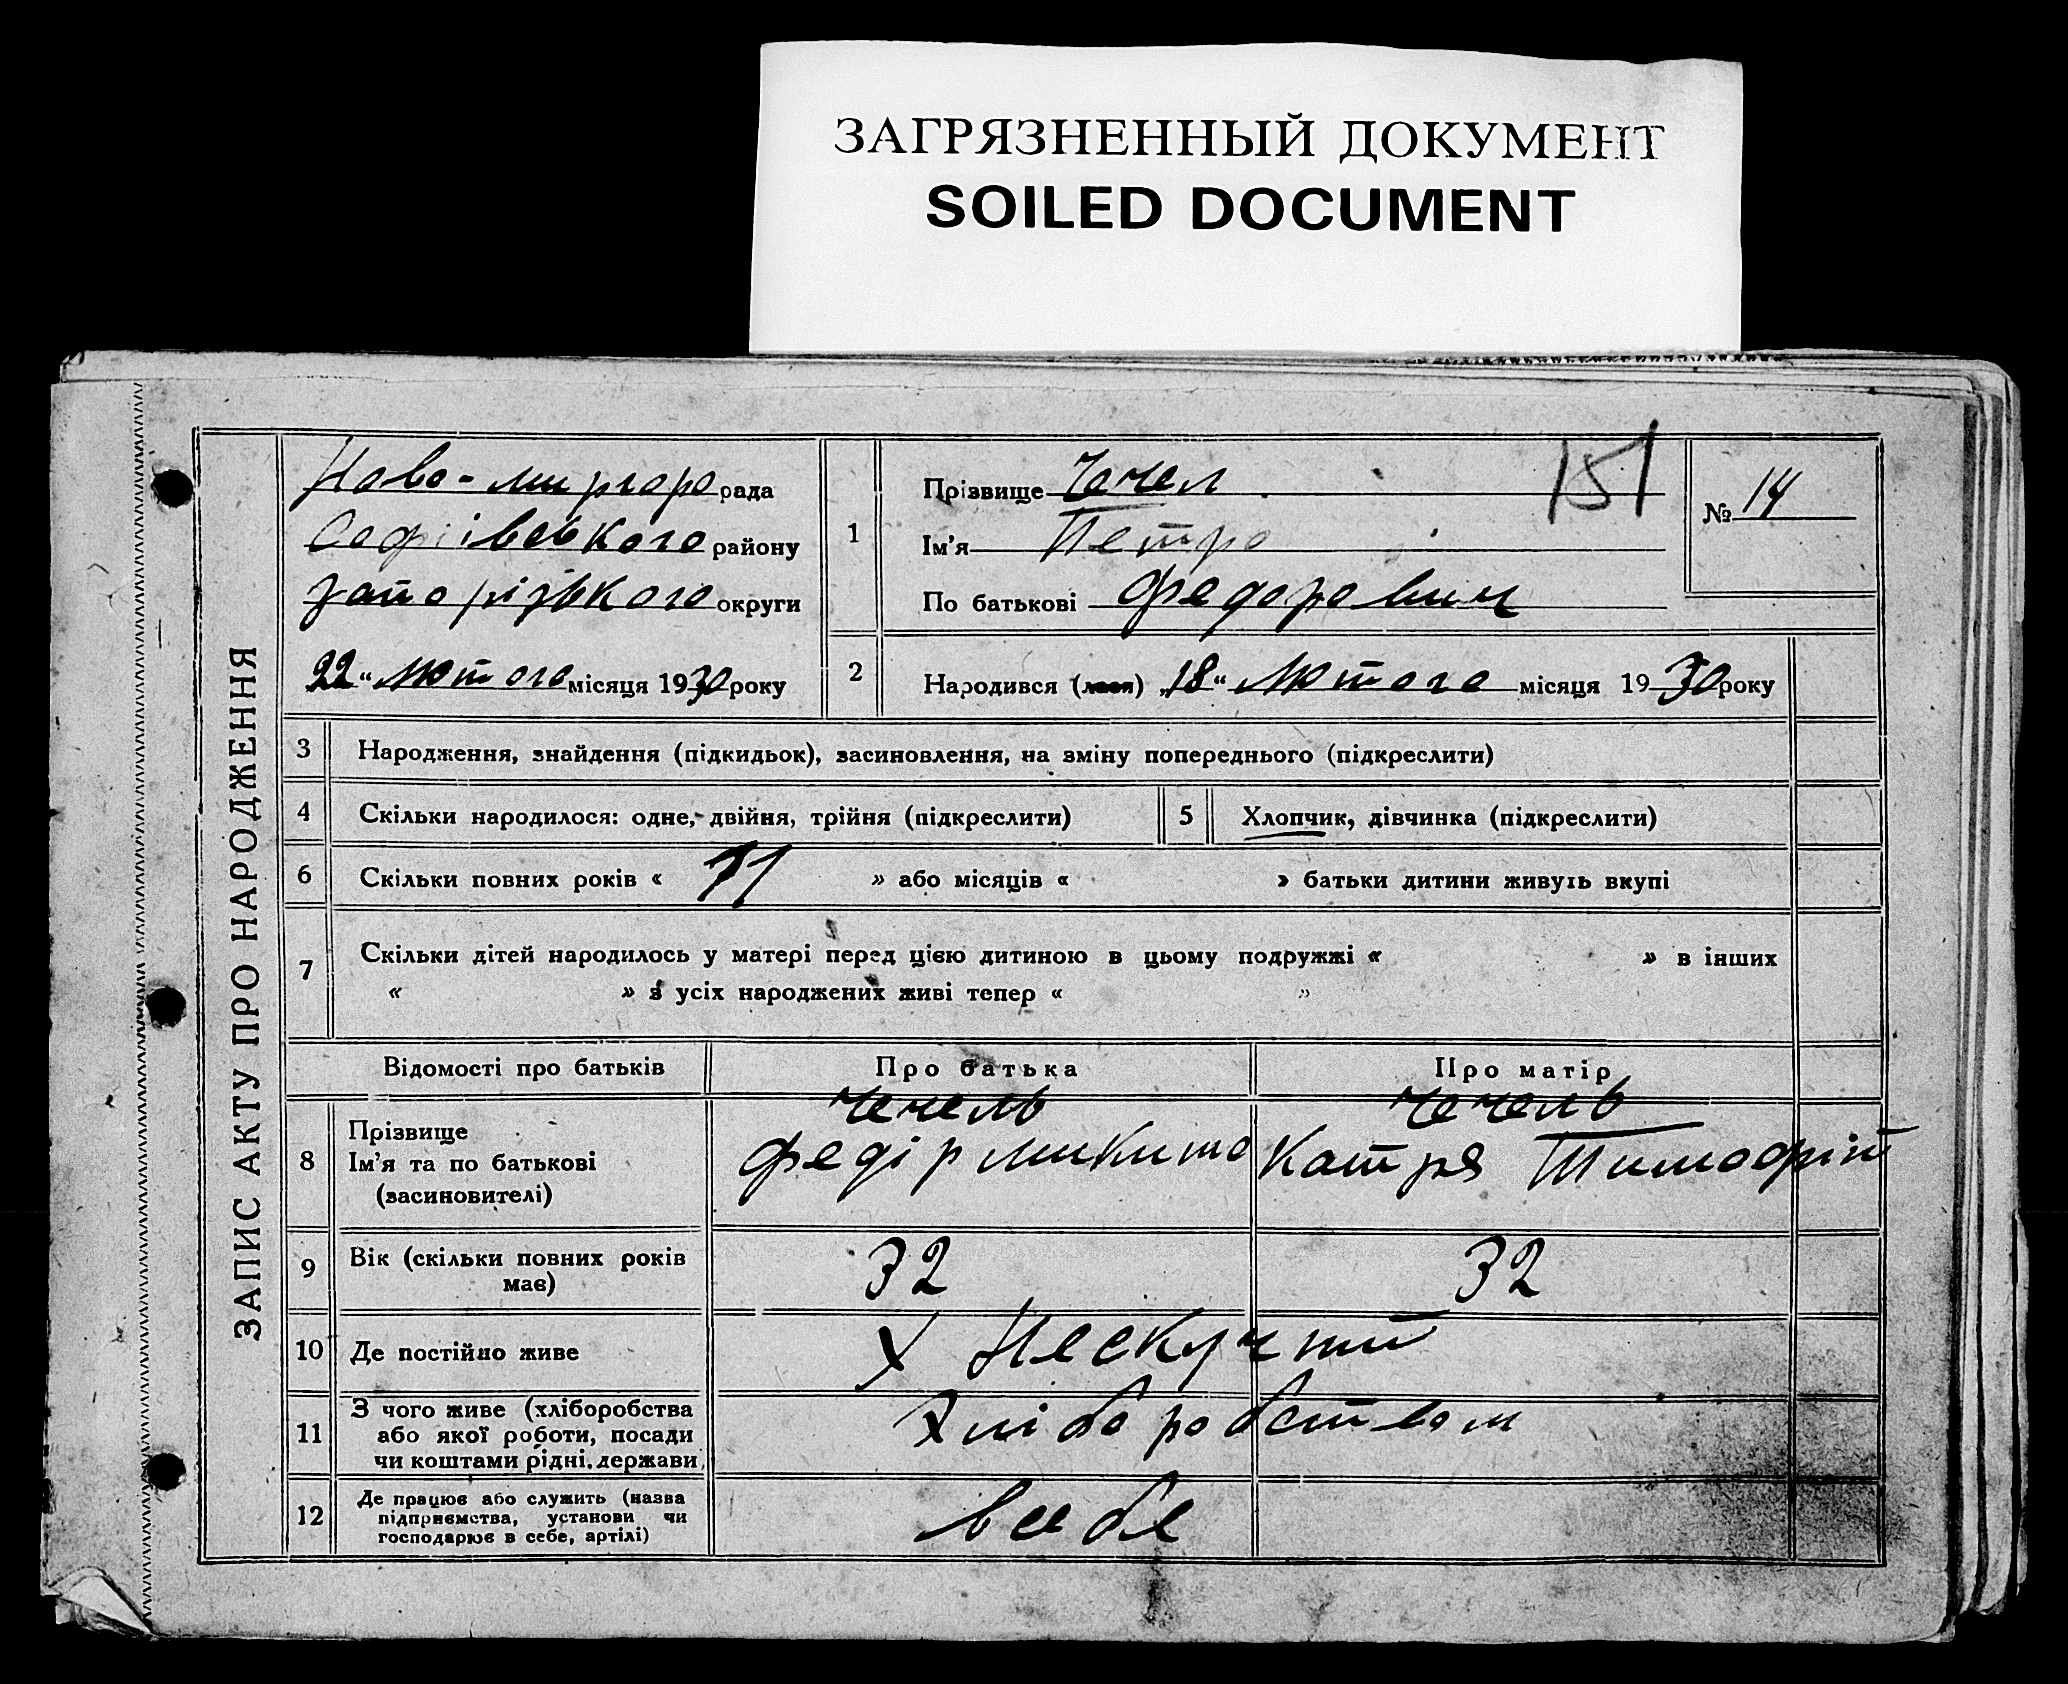 ЗАГРЯЗНЕННЫЙ ДОКУМЕНТ
SOILED DOCUMENT
ЗАПИС АКТУ ПРО НАРОДЖЕННЯ
Ново-миргоро рада
Софіівського району
Запорізького округи
22 “ Лютого місяця 1930 року
1
Прізвище Чечел
151
Ім’я Петро
По батькові Федорович
№ 14
2
Народився (лася) „18“ Лютого місяця 1930 року
3 Народження, знайдення (підкидьок), засиновлення, на зміну попереднього (підкреслити)
4 Скільки народилося: одне, двійня, трійня (підкреслити) 5 Хлопчик, дівчинка (підкреслити)
6 Скільки повних років « 11 » або місяців « » батьки дитини живуть вкупі
7 Скільки дітей народилось у матері перед цією дитиною в цьому подружжі « » в інших
« » з усіх народжених живі тепер « »
Відомості про батьків Про батька Про матір
8
Прізвище Чечель Чечель
Ім’я та по батькові Федір Микито Катря Тимофій
(засиновителі)
9 Вік (скільки повних років має) 32 32
10 Де постійно живе Х Нескучний
11 З чого живе (хліборобства
або якої роботи, посади
чи коштами рідні, держави
Хліборобством
12 Де працює або служить (назва
підприємства, установи чи
господарює в себе, артілі)
в себе